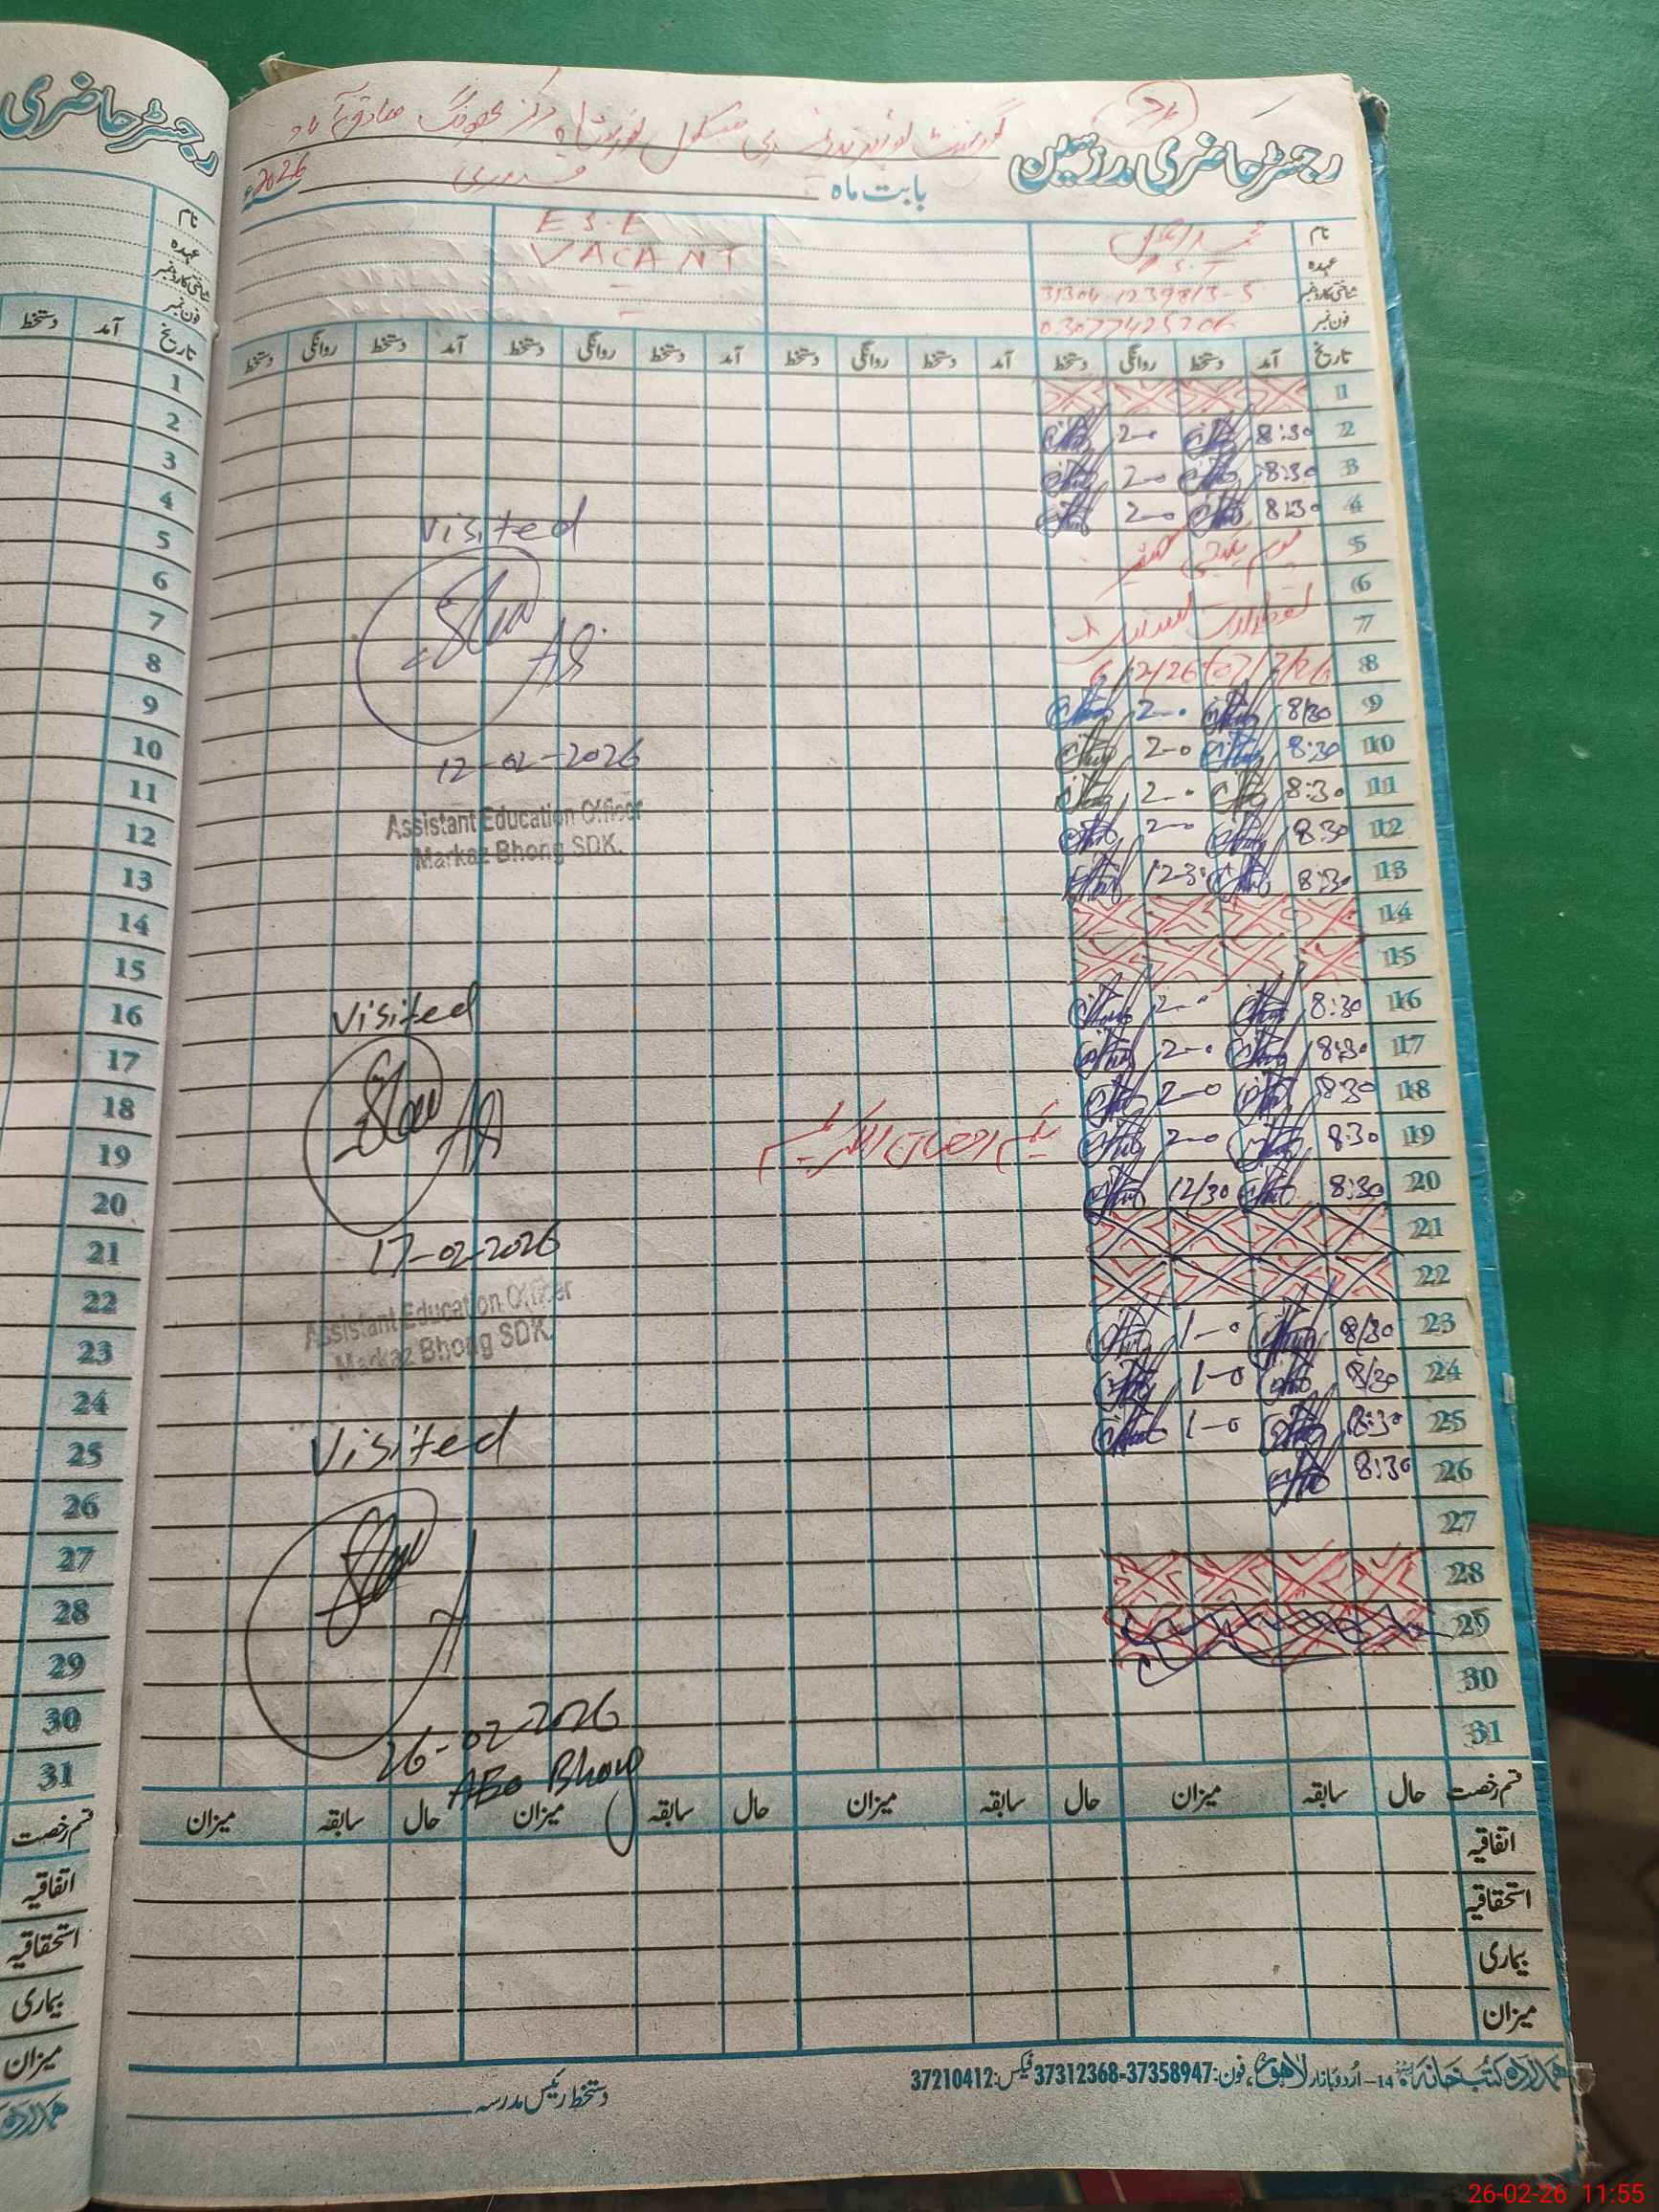 رجسٹر حاضری
نام
عہدہ
شناختی کارڈ نمبر
فون نمبر
دستخط آمد تاریخ
1
2
3
4
5
6
7
8
9
10
11
12
13
14
15
16
17
18
19
20
21
22
23
24
25
26
27
28
29
30
31
قسم رخصت
اتفاقیہ
استحقاقیہ
بیماری
میزان
رجسٹر حاضری مدرسین
گورنمنٹ سکول مرکز بھونگ صادق آباد
بابت ماہ فروری 2026
نام
عہدہ P.S.T
شناختی کارڈ نمبر 31304-1239813-5
فون نمبر
E S.E
VACANT
تاریخ آمد دستخط روانگی دستخط آمد دستخط روانگی دستخط آمد دستخط روانگی دستخط آمد دستخط روانگی دستخط
1
2 8:30 2-0
3 8:30 2-0
4 8:30 2-0
5 یوم یکجہتی کشمیر
6
7 تعطیلات
8 6/2/26 07/2/26
9 8/30 2-0
10 8:30 2-0
11 8:30 2-0
12 8:30 2-0
13 8:30 12-30
14
15
16 8:30 2-0
17 8:30 2-0
18 8:30 2-0
19 8:30 2-0 یکم رمضان الکریم
20 8:30 12/30
21
22
23 8/30 1-0
24 8/30 1-0
25 8:30 1-0
26 8:30
27
28
29
30
31
Visited
12-02-2026
Assistant Education Officer
Markaz Bhong SDK.
Visited
17-02-2026
Assistant Education Officer
Markaz Bhong SDK.
Visited
26-02-2026
AEO Bhong
قسم رخصت حال سابقہ میزان حال سابقہ میزان حال سابقہ میزان حال سابقہ میزان
اتفاقیہ
استحقاقیہ
بیماری
میزان
ہمدرد کتب خانہ 14-اُردو بازار لاہور، فون:37358947-37312368 فیکس:37210412
دستخط رئیس مدرسہ
26-02-26 11:55